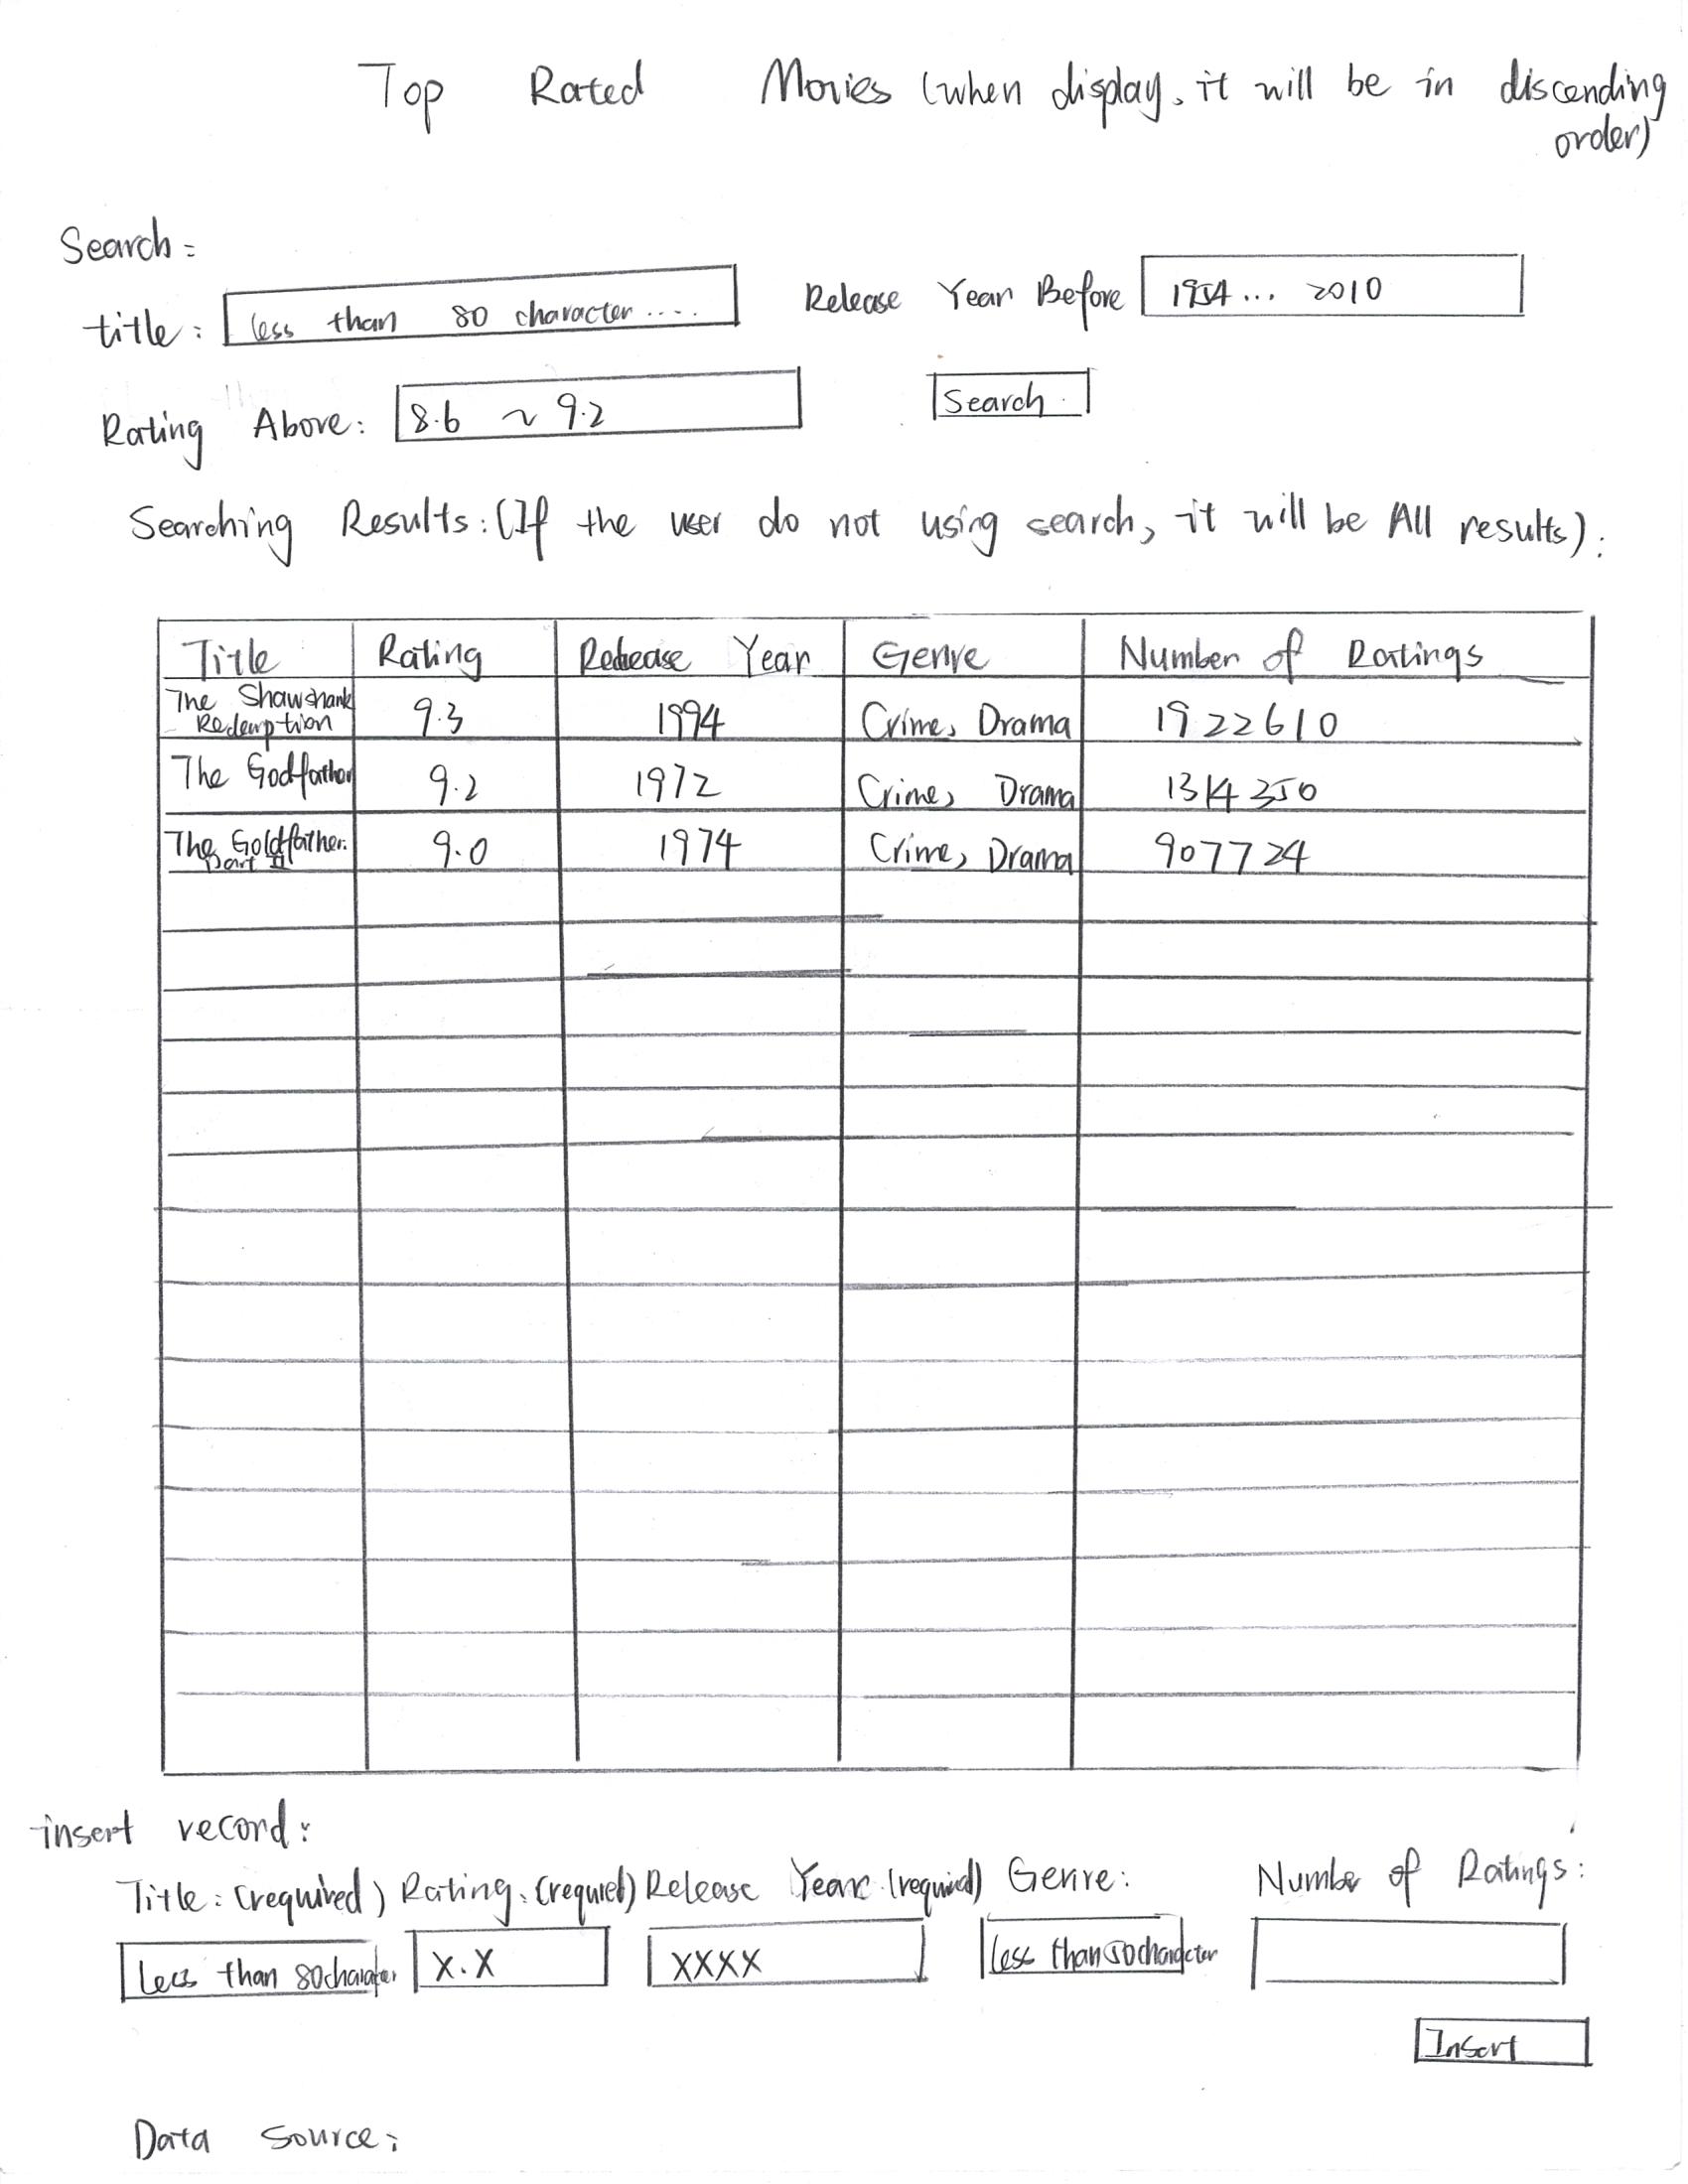 Top Rated Movies (when display, it will be in discending
order)
Search:
title: less than 80 character....
Release Year Before 1954... 2010
Rating Above: 8.6 ~ 9.2
Search
Searching Results: (If the user do not using search, it will be All results):
Title Rating Release Year Genre Number of Ratings
The Shawshank
Redemption 9.3 1994 Crime, Drama 1922610
The Godfather 9.2 1972 Crime, Drama 1314350
The Goldfather:
Part II 9.0 1974 Crime, Drama 907724
insert record:
Title: (required) Rating: (requied) Release Year (required) Genre: Number of Ratings:
less than 80 character X.X XXXX less than 50 character
Insert
Data Source: